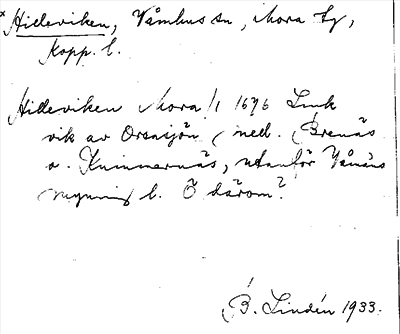 Hilleviken, Våmhus sn, Mora tg,
Kopp. l.
Hilleviken Mora 1/1 1696 Lmk
vik av Orsasjön mell. Brenäs
o. Kvinnernäs, utanför Våmåns
mynning l. Ö därom?
B. Lindén 1933.